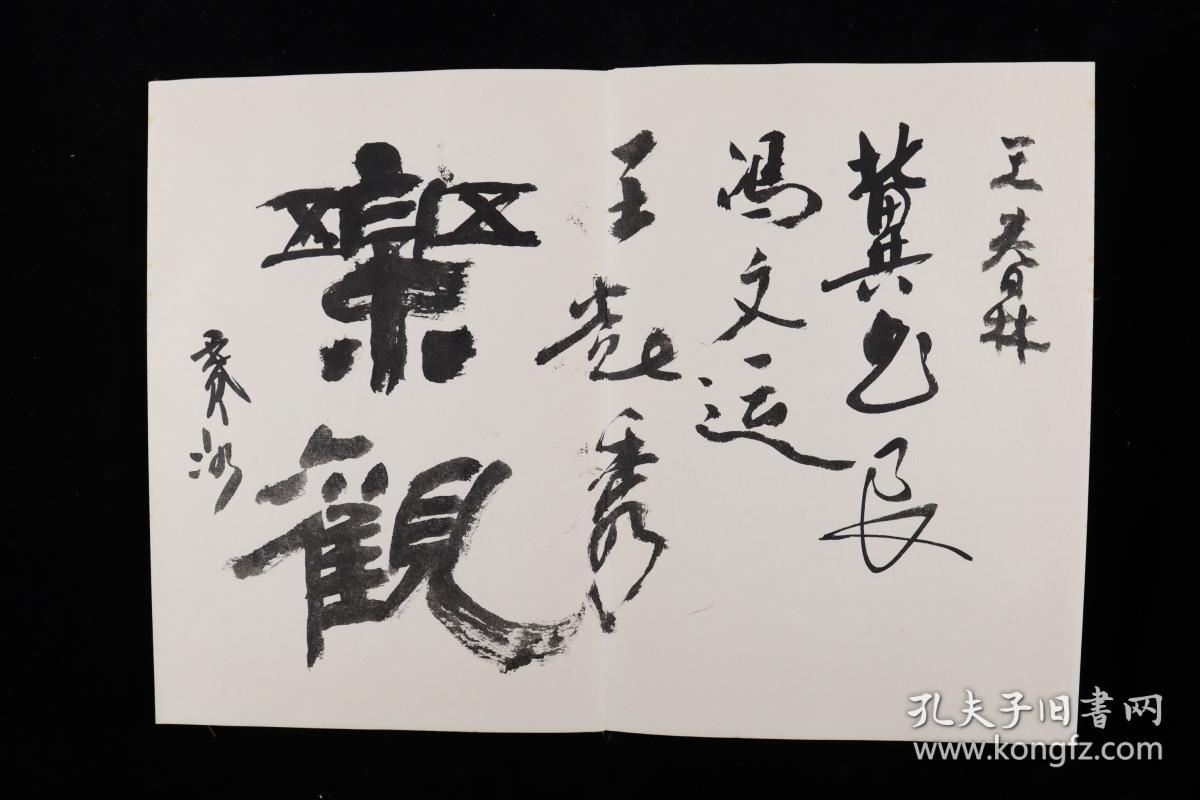 王春林
冀書良
冯文运
王光秀
樂觀
孔夫子旧書网
www.kongfz.com